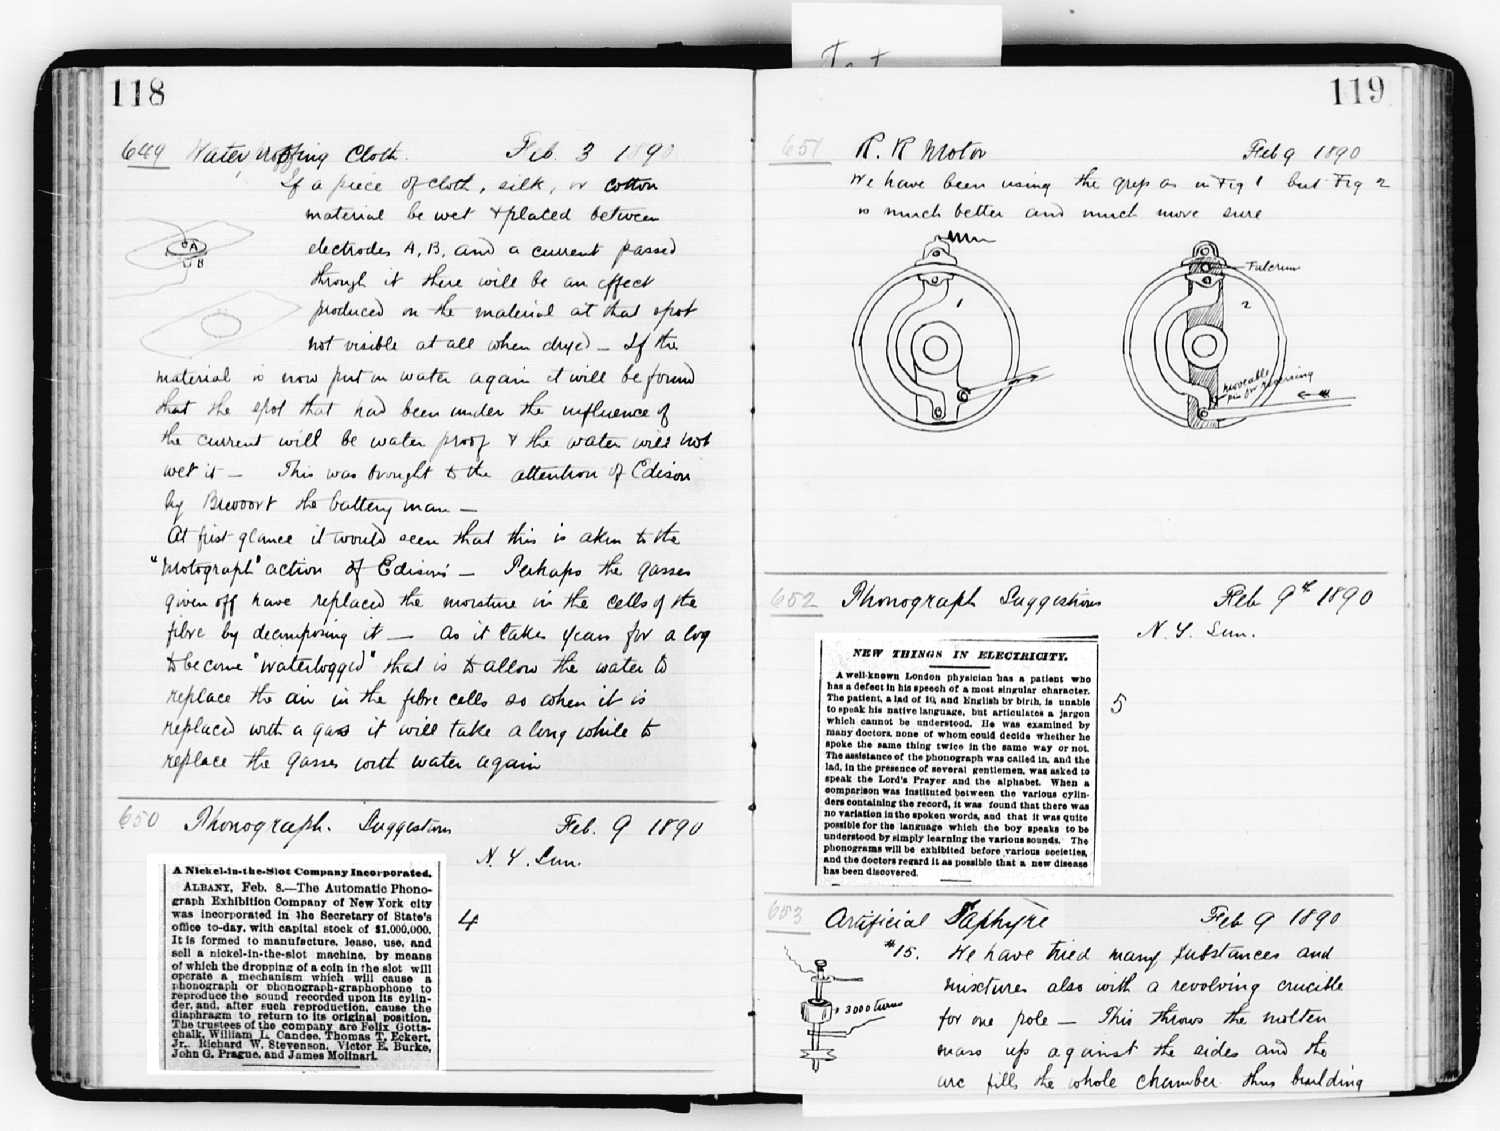 118
649 Water proofing Cloth. Feb. 3 1890
If a piece of cloth, silk, or cotton
material be wet & placed between
electrodes A, B, and a current passed
through it there will be an effect
produced on the material at that spot
not visible at all when dryed — If the
material is now put in water again it will be found
that the spot that had been under the influence of
the current will be water proof & the water will not
wet it — This was brought to the attention of Edison
by Brevoort the battery man —
At first glance it would seem that this is akin to the
"Motograph" action of Edison's — Perhaps the gasses
given off have replaced the moisture in the cells of the
fibre by decomposing it — As it takes years for a log
to become "waterlogged" that is to allow the water to
replace the air in the fibre cells so when it is
replaced with a gass it will take a long while to
replace the gasses with water again
A
B
650 Phonograph. Suggestions Feb. 9 1890
N. Y. Sun.
A Nickel-in-the-Slot Company Incorporated.
ALBANY, Feb. 8.—The Automatic Phono-
graph Exhibition Company of New York city
was incorporated in the Secretary of State's
office to-day, with capital stock of $1,000,000.
It is formed to manufacture, lease, use, and
sell a nickel-in-the-slot machine, by means
of which the dropping of a coin in the slot will
operate a mechanism which will cause a
phonograph or phonograph-graphophone to
reproduce the sound recorded upon its cylin-
der, and, after such reproduction, cause the
diaphragm to return to its original position.
The trustees of the company are Felix Gotts-
chalk, William L. Candee, Thomas T. Eckert,
Jr., Richard W. Stevenson, Victor E. Burke,
John G. Prague, and James Molinari.
4
119
651 R. R Motor Feb 9 1890
We have been using the grip as in Fig 1 but Fig 2
is much better and much more sure
1
Fulcrum
2
moveable
pin for reversing
652 Phonograph Suggestions Feb 9th 1890
N. Y. Sun.
NEW THINGS IN ELECTRICITY.
A well-known London physician has a patient who
has a defect in his speech of a most singular character.
The patient, a lad of 10, and English by birth, is unable
to speak his native language, but articulates a jargon
which cannot be understood. He was examined by
many doctors, none of whom could decide whether he
spoke the same thing twice in the same way or not.
The assistance of the phonograph was called in, and the
lad, in the presence of several gentlemen, was asked to
speak the Lord's Prayer and the alphabet. When a
comparison was instituted between the various cylin-
ders containing the record, it was found that there was
no variation in the spoken words, and that it was quite
possible for the language which the boy speaks to be
understood by simply learning the various sounds. The
phonograms will be exhibited before various societies,
and the doctors regard it as possible that a new disease
has been discovered.
5
653 Artificial Saphyre Feb 9 1890
#15. We have tried many substances and
mixtures also with a revolving crucible
for one pole — This throws the molten
mass up against the sides and the
arc fills the whole chamber thus building
3000 turns